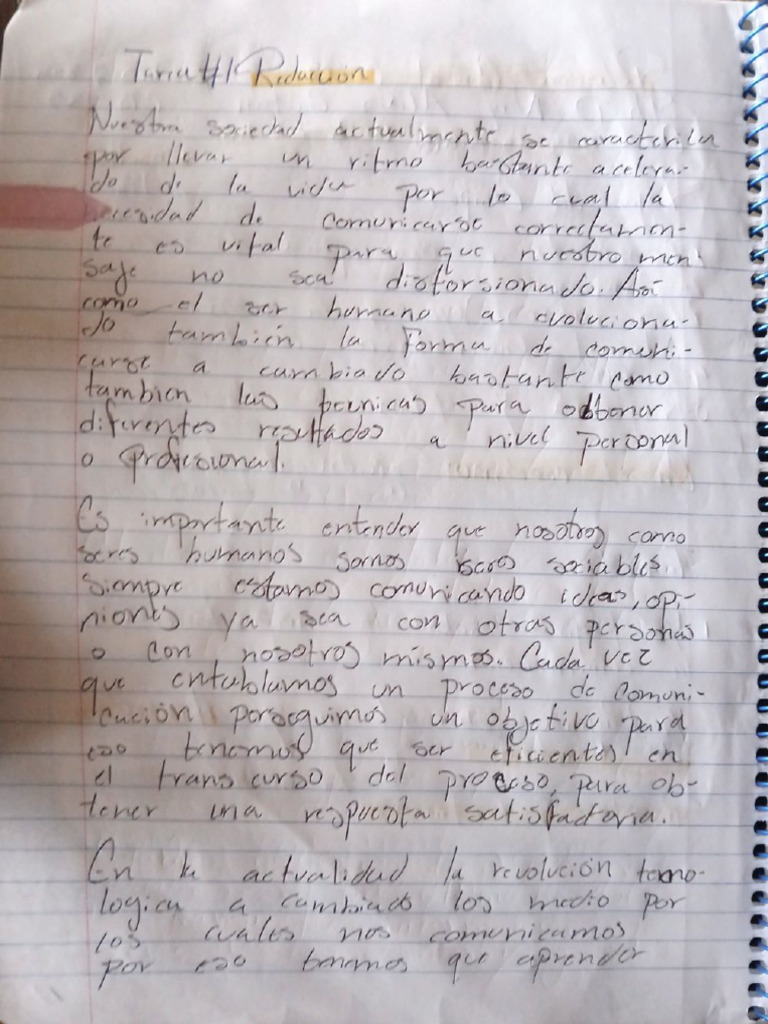 Tarea #1 Redacción
Nuestra sociedad actualmente se caracteriza
por llevar un ritmo bastante acelera-
do de la vida por lo cual la
necesidad de comunicarse correctamen-
te es vital para que nuestro men-
saje no sea distorsionado. Así
como el ser humano a evoluciona-
do también la forma de comuni-
carse a cambiado bastante como
tambien las tecnicas para obtener
diferentes resultados a nivel personal
o profesional.
Es importante entender que nosotros como
seres humanos somos seres sociables
siempre estamos comunicando ideas, opi-
niones ya sea con otras personas
o con nosotros mismos. Cada vez
que entablamos un proceso de comuni-
cación perseguimos un objetivo para
eso tenemos que ser eficientes en
el transcurso del proceso, para ob-
tener una respuesta satisfactoria.
En la actualidad la revolución tecno-
logica a cambiado los medio por
los cuales nos comunicamos
por eso tenemos que aprender